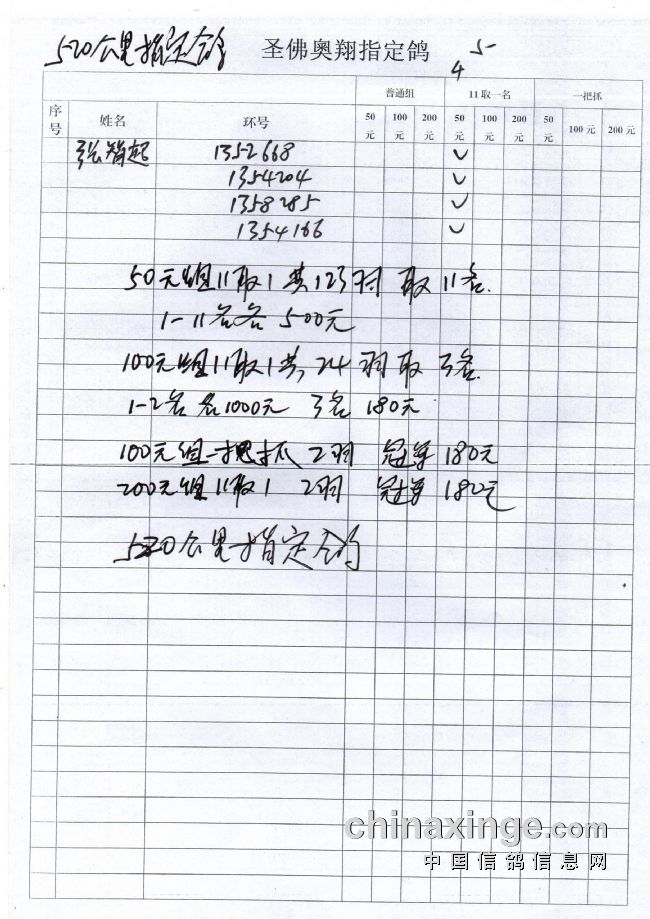 520公里指定鸽 圣佛奥翔指定鸽 5-4
普通组 11取一名 一把抓
序号 姓名 环号 50元 100元 200元 50元 100元 200元 50元 100元 200元
张 1352668
1354204
1358285
1354166
50元组11取1 共123羽 取11名.
1-11名各 500元
100元组11取1共, 24羽取3名.
1-2名各1000元 3名 180元
100元组一把抓 2羽 冠军 180元
200元组11取1 2羽 冠军 180元
520公里指定鸽
chinaxinge.com
中国信鸽信息网